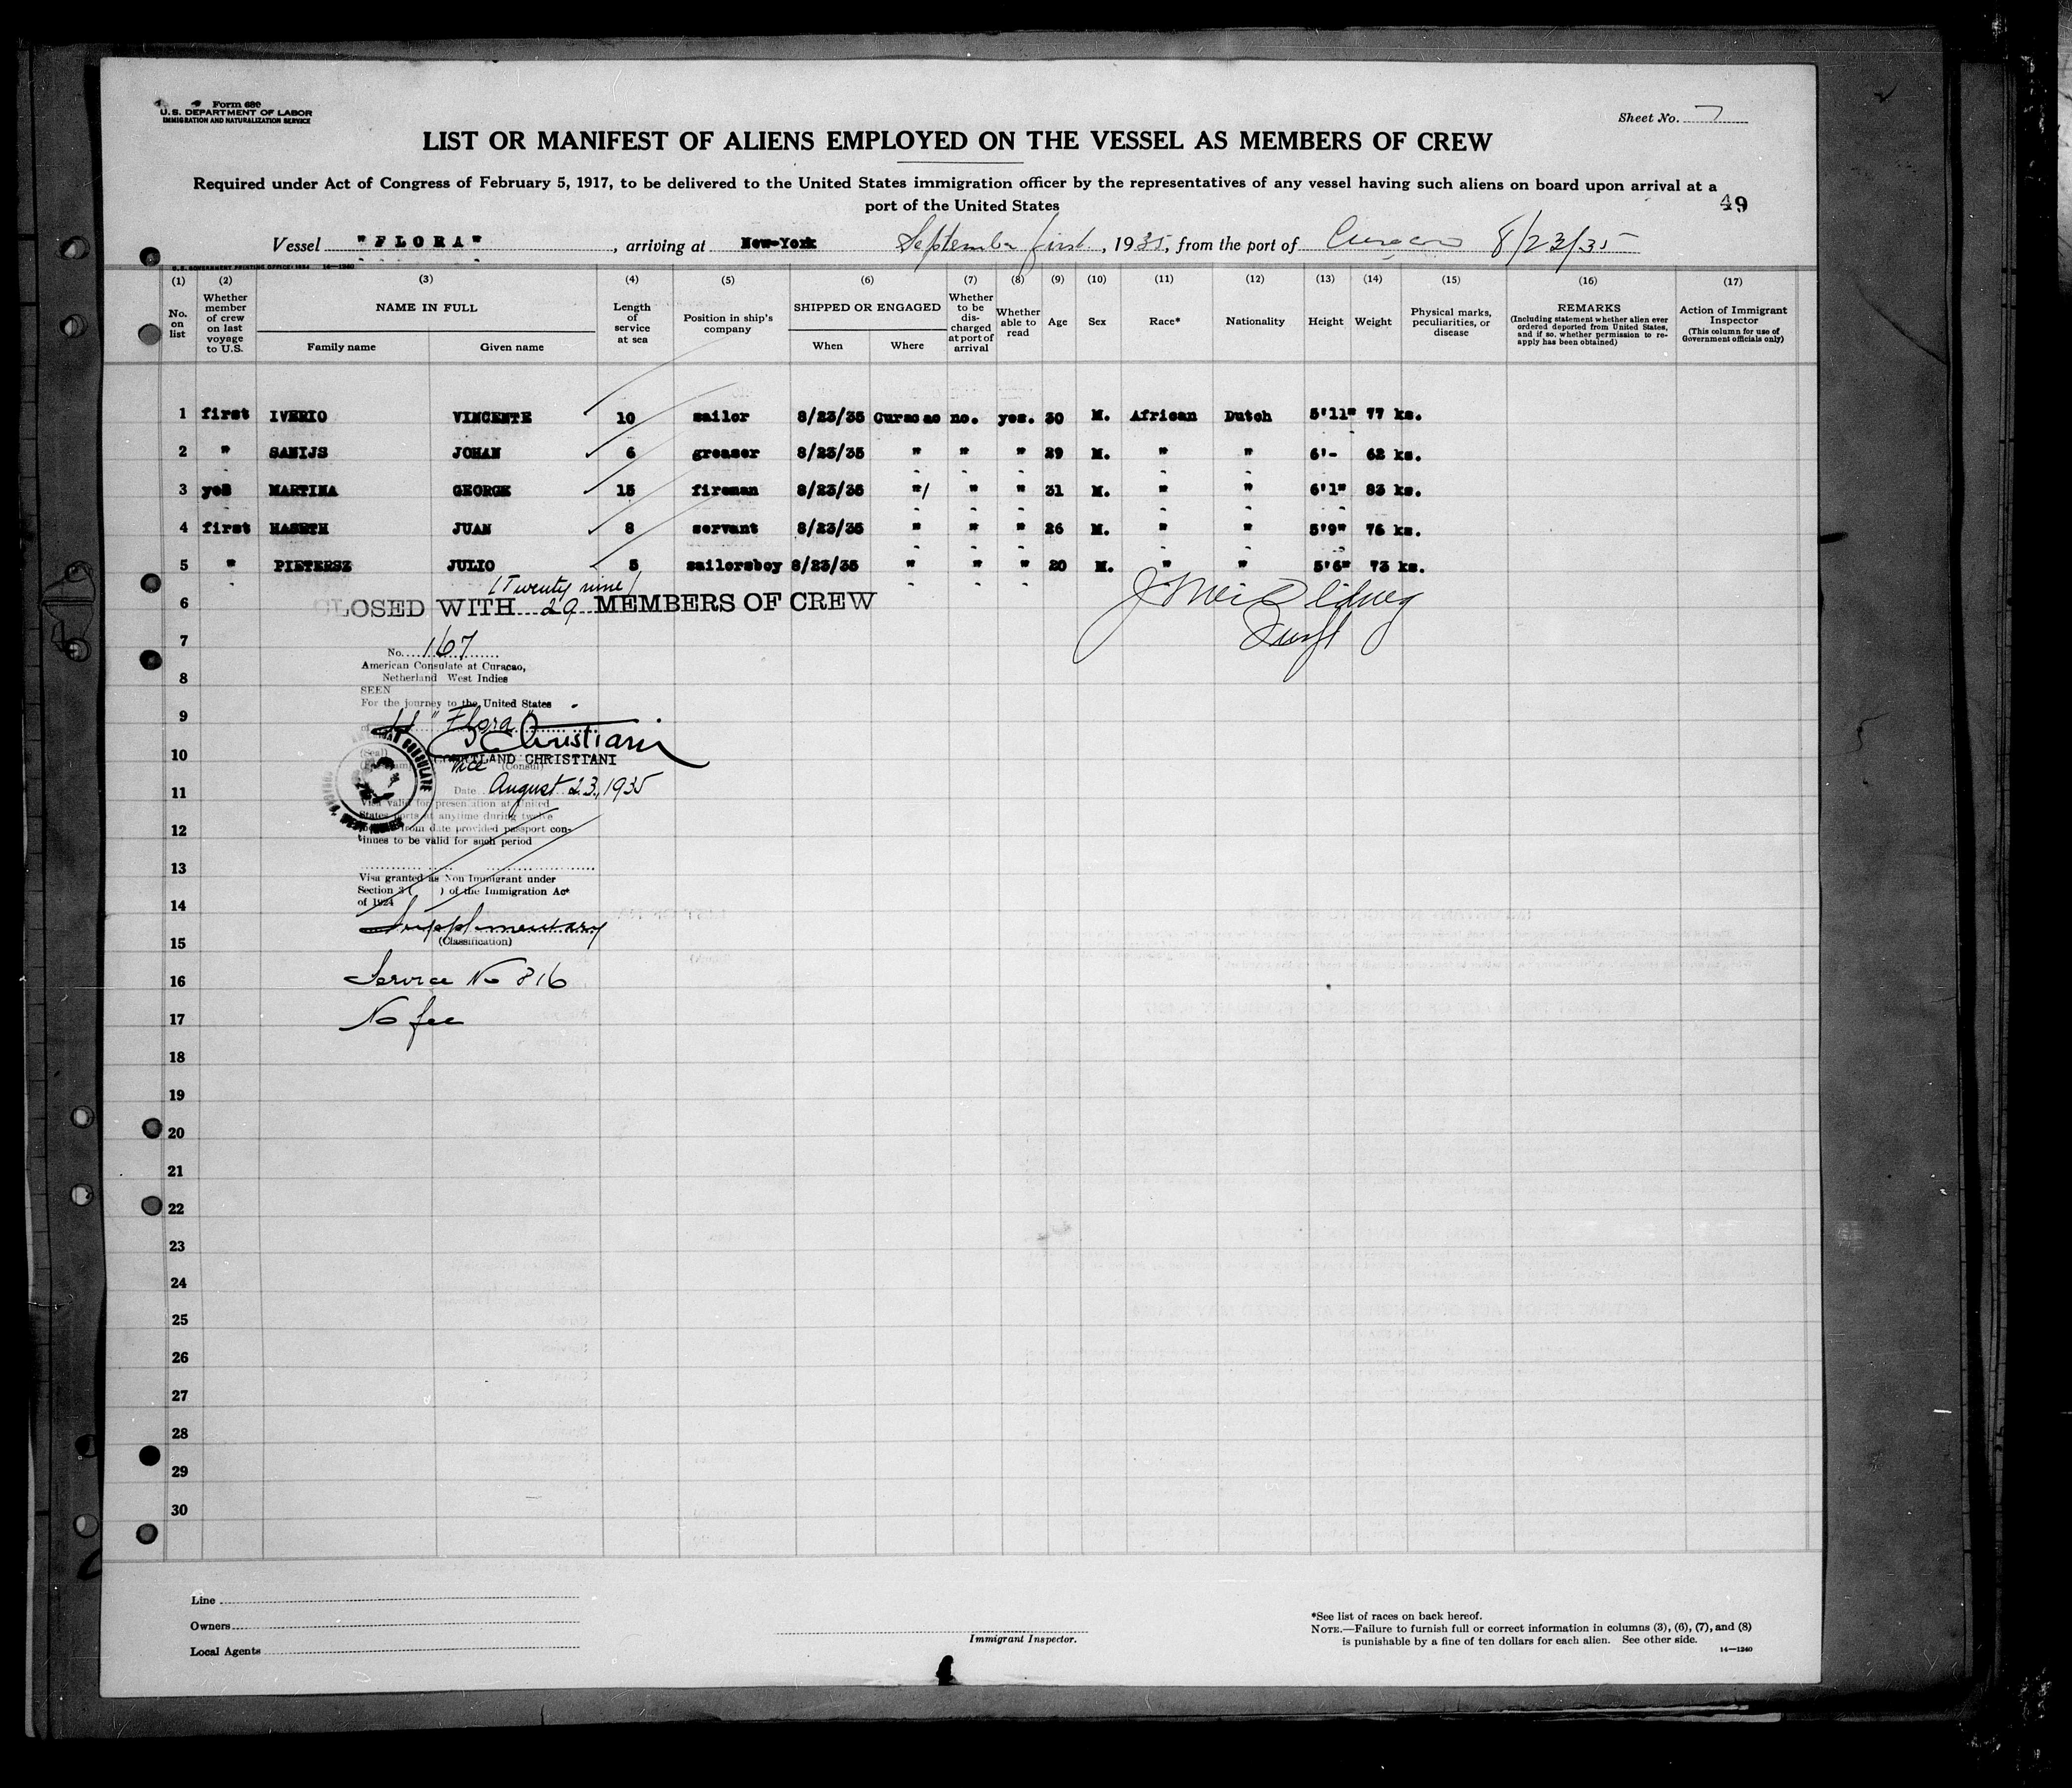 Form 680
U.S. DEPARTMENT OF LABOR
IMMIGRATION AND NATURALIZATION SERVICE
Sheet No. 7
LIST OR MANIFEST OF ALIENS EMPLOYED ON THE VESSEL AS MEMBERS OF CREW
Required under Act of Congress of February 5, 1917, to be delivered to the United States immigration officer by the representatives of any vessel having such aliens on board upon arrival at a
port of the United States
49
Vessel "FLORA", arriving at New-York September first, 1935, from the port of Curacao 8/23/35
U.S. GOVERNMENT PRINTING OFFICE: 1934 14—1240
(1) (2) (3) (4) (5) (6) (7) (8) (9) (10) (11) (12) (13) (14) (15) (16) (17)
No. on list
Whether member of crew on last voyage to U.S.
NAME IN FULL
Family name
Given name
Length of service at sea
Position in ship's company
SHIPPED OR ENGAGED
When
Where
Whether to be discharged at port of arrival
Whether able to read
Age
Sex
Race*
Nationality
Height
Weight
Physical marks, peculiarities, or disease
REMARKS
(Including statement whether alien ever ordered deported from United States, and if so, whether permission to re-apply has been obtained)
Action of Immigrant Inspector
(This column for use of Government officials only)
1 first IVERIO VINCENTE 10 sailor 8/23/35 Curacao no. yes. 30 M. African Dutch 5'11" 77 ks.
2 " SANIJS JOHAN 6 greaser 8/23/35 " " " 29 M. " " 6'- 62 ks.
3 yes MARTINA GEORGE 15 fireman 8/23/35 " " " 31 M. " " 6'1" 83 ks.
4 first HASETH JUAN 8 servant 8/23/35 " " " 26 M. " " 5'9" 76 ks.
5 " PIETERSZ JULIO 5 sailorsboy 8/23/35 " " " 20 M. " " 5'6" 73 ks.
(Twenty nine)
6 CLOSED WITH 29 MEMBERS OF CREW
7
No. 167
American Consulate at Curaçao,
8 Netherland West Indies
SEEN
For the journey to the United States
9
of "Flora"
C Christiani
10
(Seal)
CORTLAND CHRISTIANI
Vice (Consul)
Date August 23, 1935
11
Visa valid for presentation at United
States ports at anytime during twelve
12
from date provided passport con-
tinues to be valid for such period
13
Visa granted as Non Immigrant under
Section 3 ( ) of the Immigration Act
of 1924
14
Supplementary
15
(Classification)
16 Service No 816
17 No fee
18
19
20
21
22
23
24
25
26
27
28
29
30
Line
Owners
Local Agents
Immigrant Inspector.
*See list of races on back hereof.
NOTE.—Failure to furnish full or correct information in columns (3), (6), (7), and (8)
is punishable by a fine of ten dollars for each alien. See other side.
14—1240